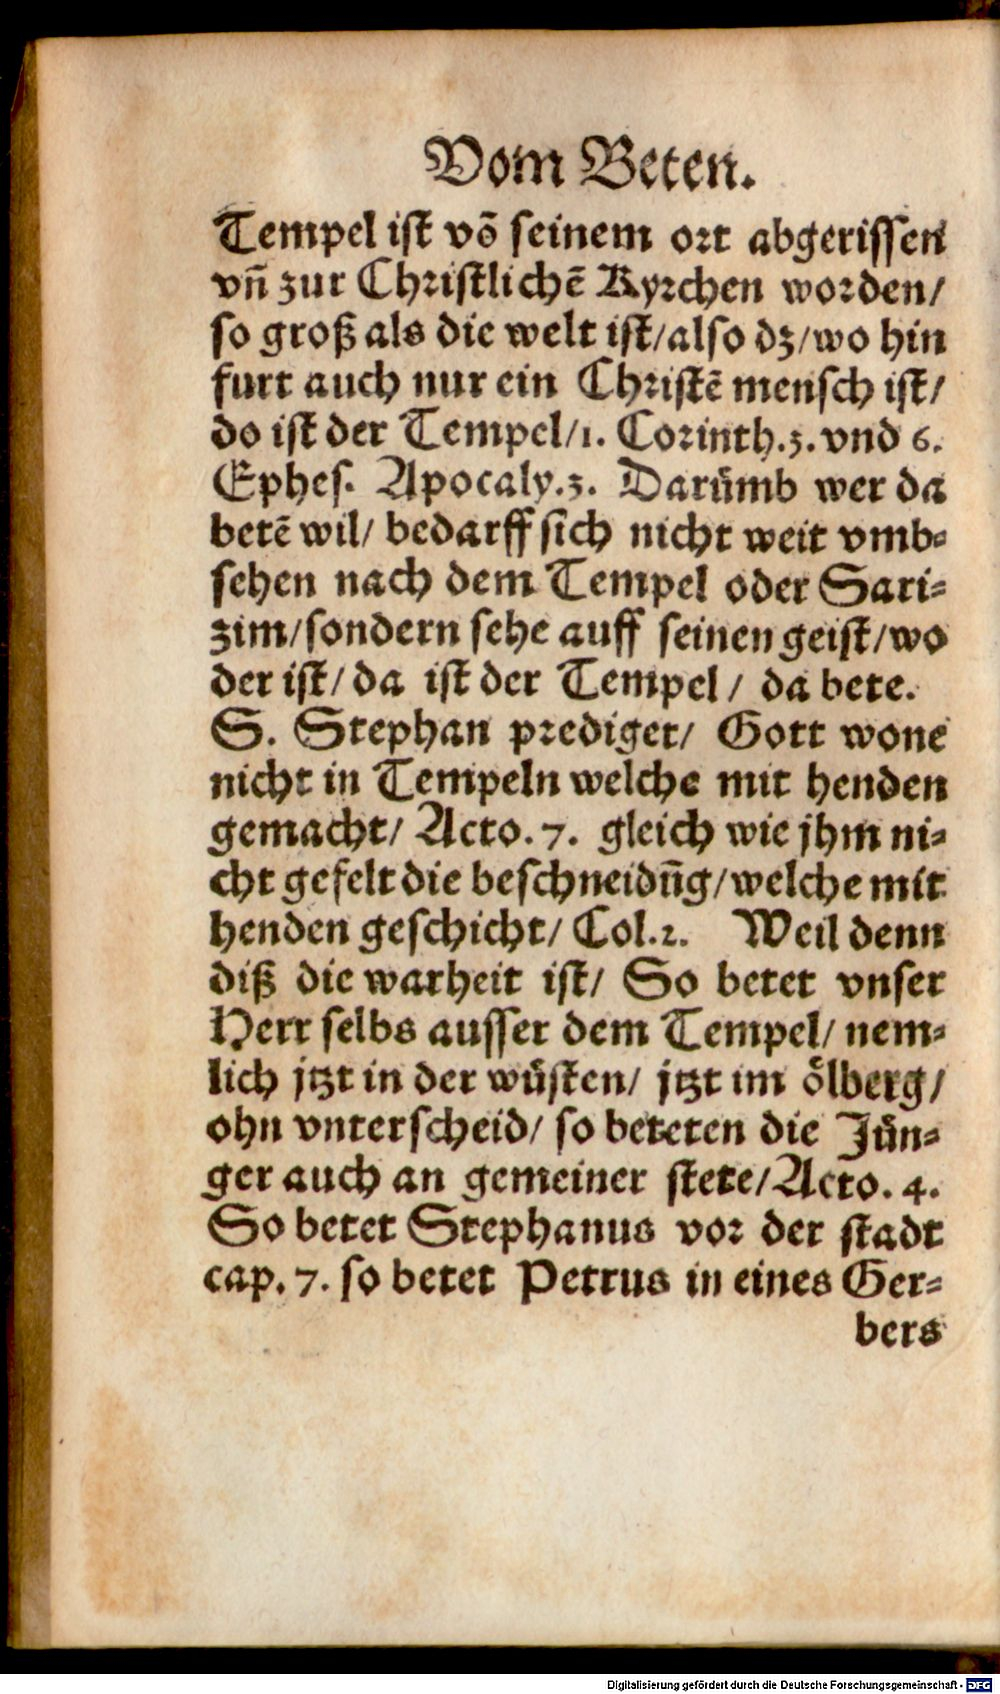 Vom Beten.
Tempel ist võ seinem ort abgerissen
vñ zur Christlichẽ Kyrchen worden/
so groß als die welt ist/also dz/wo hin
furt auch nur ein Christẽ mensch ist/
do ist der Tempel/1. Corinth.3. vnd 6.
Ephes. Apocaly.3. Darümb wer da
betẽ wil/ bedarff sich nicht weit vmb-
sehen nach dem Tempel oder Sari-
zim/sondern sehe auff seinen geist/wo
der ist/ da ist der Tempel / da bete.
S. Stephan prediget/ Gott wone
nicht in Tempeln welche mit henden
gemacht/ Acto. 7. gleich wie jhm ni-
cht gefelt die beschneidũg/welche mit
henden geschicht/ Col.2. Weil denn
diß die warheit ist/ So betet vnser
Herr selbs ausser dem Tempel/ nem-
lich jtzt in der wüsten/ jtzt im ölberg/
ohn vnterscheid/ so beteten die Jün-
ger auch an gemeiner stete/Acto. 4.
So betet Stephanus vor der stadt
cap. 7. so betet Petrus in eines Ger-
bers
Digitalisierung gefördert durch die Deutsche Forschungsgemeinschaft - DFG